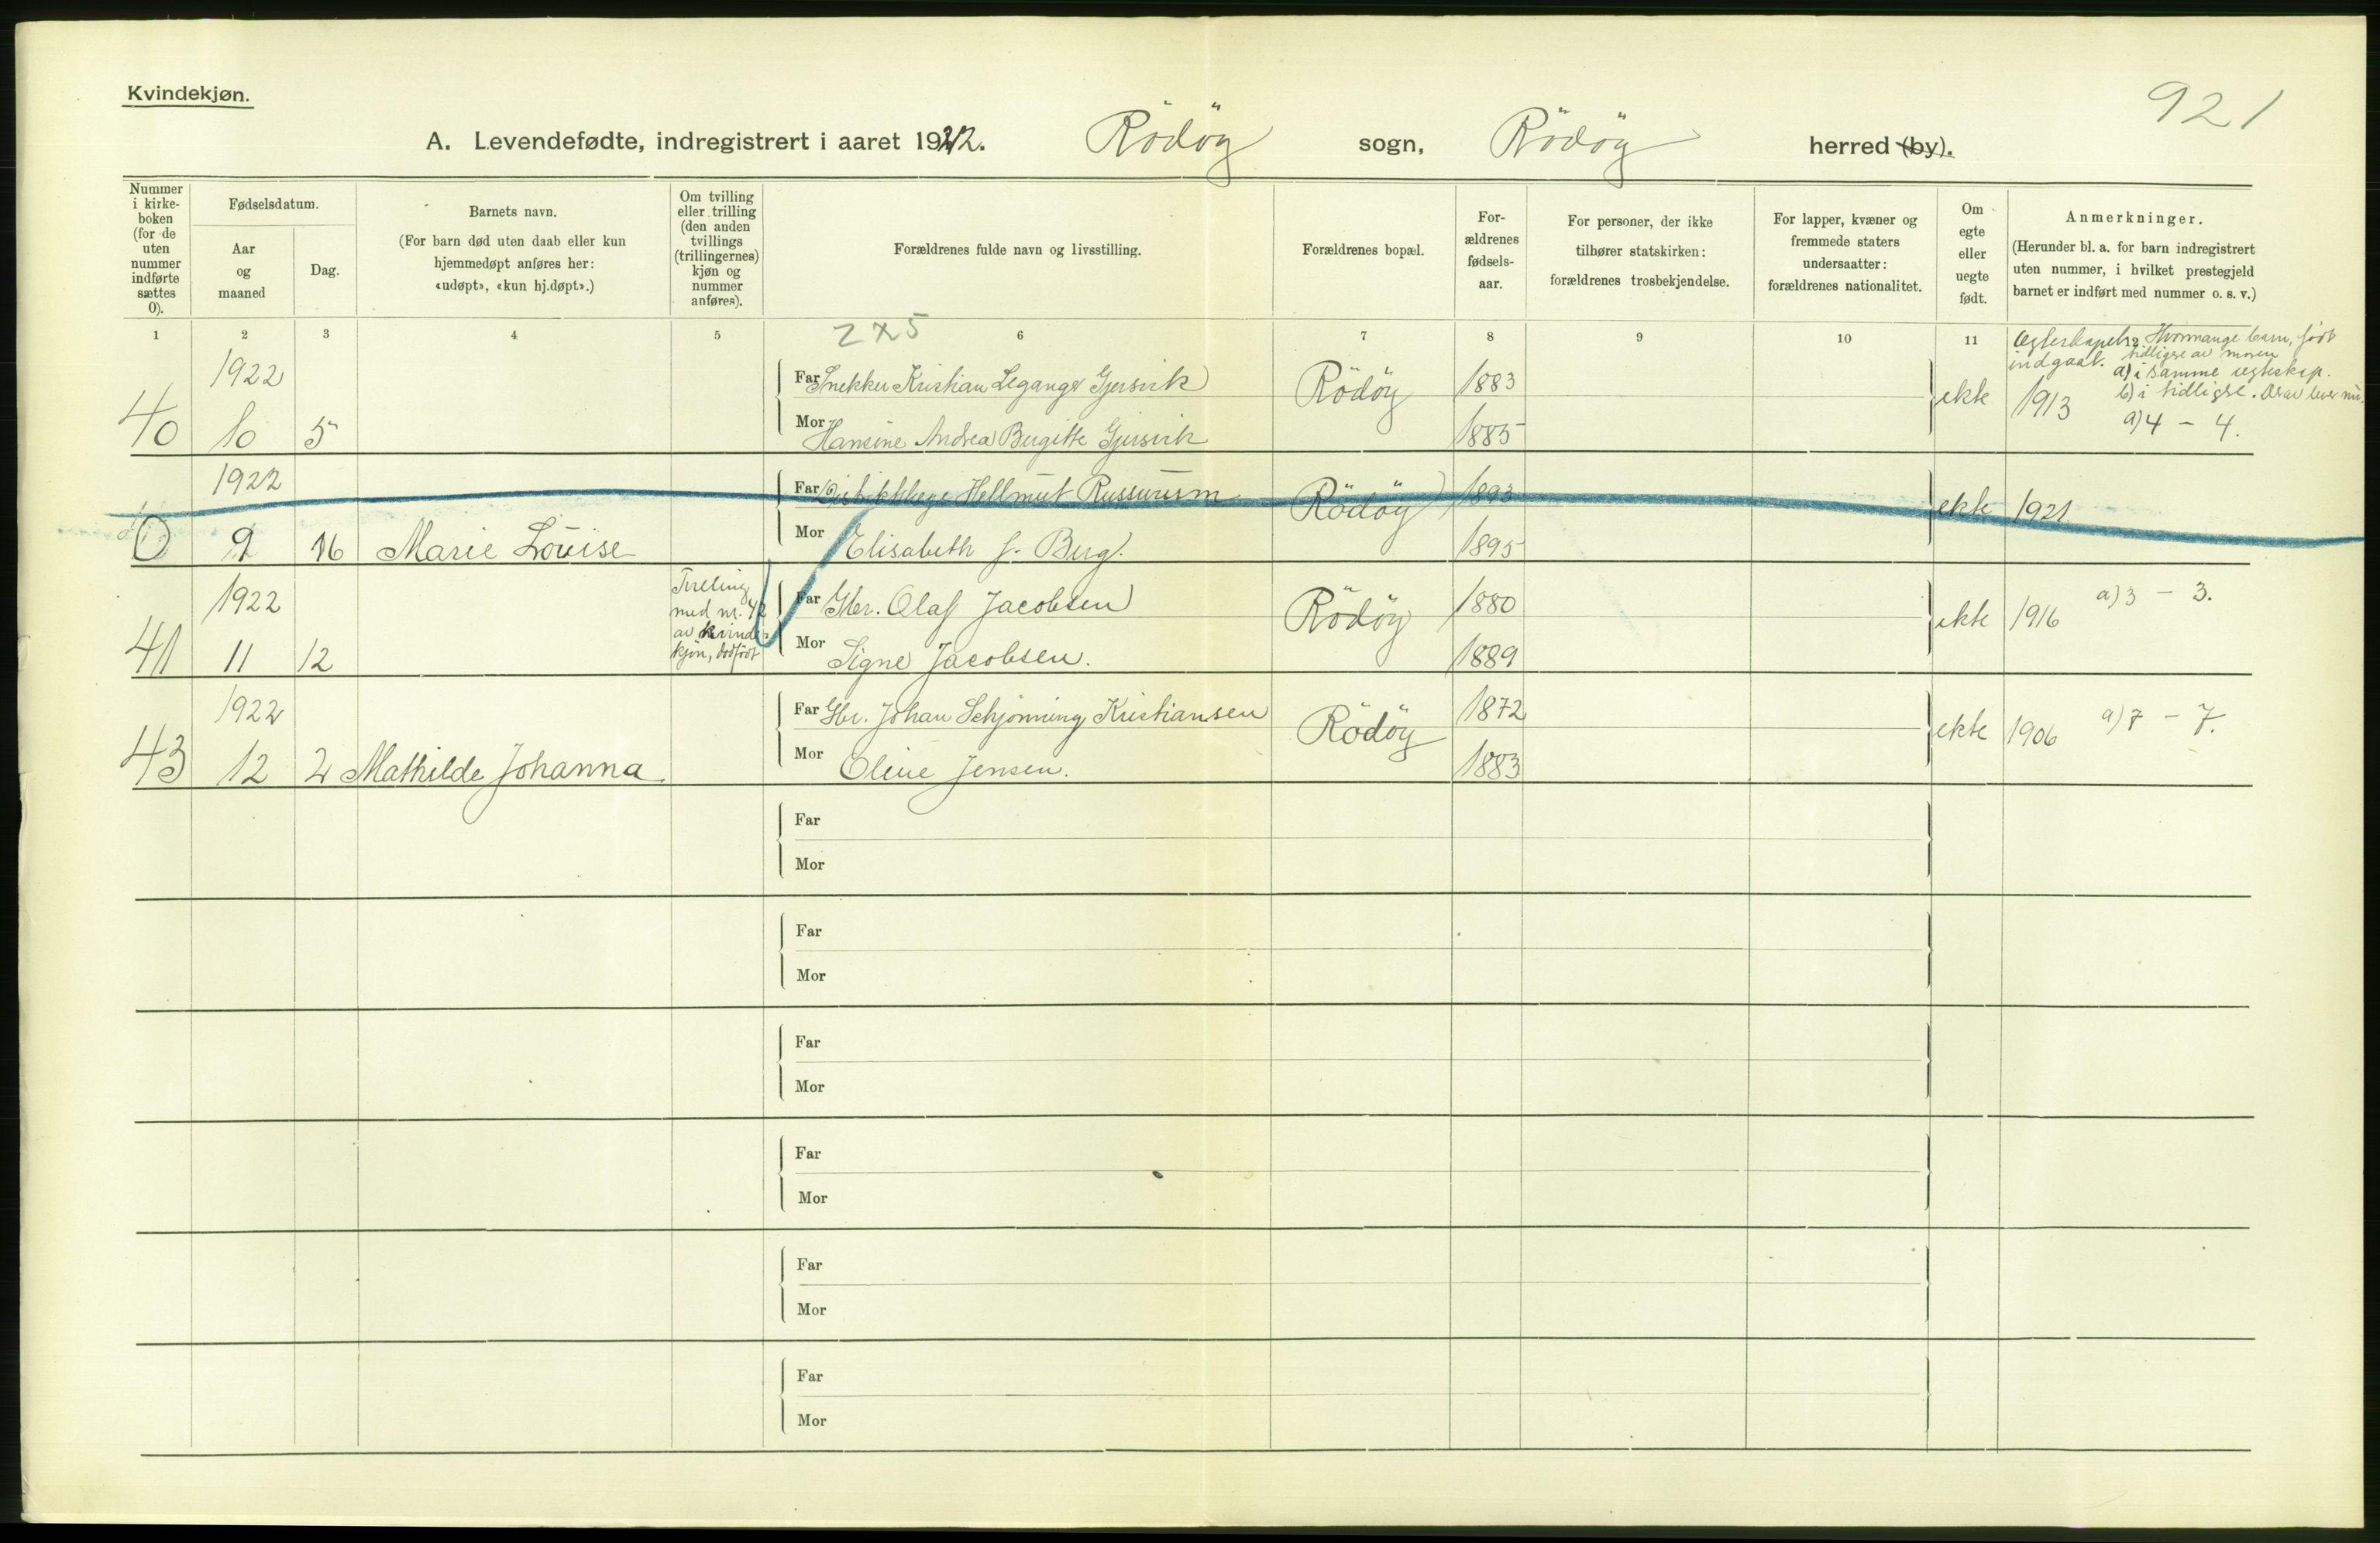 Kvindekjøn.
921
A. Levendefødte, indregistrert i aaret 1922. Rödöy sogn, Rödöy herred (by).
Nummer i kirke-boken (for de uten nummer indførte sættes 0).
Fødselsdatum.
Aar og maaned
Dag.
Barnets navn.
(For barn død uten daab eller kun hjemmedøpt anføres her: «udøpt», «kun hj.døpt».)
Om tvilling eller trilling (den anden tvillings (trillingernes) kjøn og nummer anføres).
Forældrenes fulde navn og livsstilling.
Forældrenes bopæl.
For-ældrenes fødsels-aar.
For personer, der ikke tilhører statskirken: forældrenes trosbekjendelse.
For lapper, kvæner og fremmede staters undersaatter: forældrenes nationalitet.
Om egte eller uegte født.
Anmerkninger.
(Herunder bl. a. for barn indregistrert uten nummer, i hvilket prestegjeld barnet er indført med nummer o. s. v.)
1 2 3 4 5 6 7 8 9 10 11
2x5
Egteskapet indgaat.
Hvormange barn, født tidligere av moren
a) i samme egteskap.
b) i tidligere. Derav lever nu.
1922
40 10 5
Far Snekker Kristian Leganger Gjersvik Rödöy 1883 ekte 1913
Mor Hansine Andrea Bergitte Gjersvik 1885 a) 4 - 4.
1922
0 9 16 Marie Louise
Far Distriktslæge Hellmut Russwurm Rödöy 1893 ekte 1921
Mor Elisabeth f. Berg. 1895
1922
41 11 12
Tvilling med nr. 42 av kvinde-kjön, dødfødt
Far Gbr. Olaf Jacobsen Rödöy 1880 ekte 1916 a) 3 - 3.
Mor Signe Jacobsen. 1889
1922
43 12 2 Mathilde Johanna
Far Gbr. Johan Schjönning Kristiansen Rödöy 1872 ekte 1906 a) 7 - 7.
Mor Oline Jensen. 1883
Far
Mor
Far
Mor
Far
Mor
Far
Mor
Far
Mor
Far
Mor